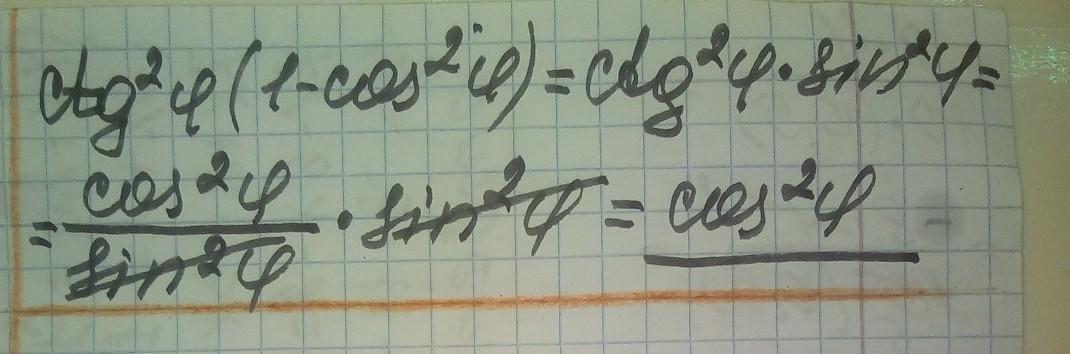 ctg²φ(1-cos²φ)=ctg²φ·sin²φ=
=cos²φ/sin²φ·sin²φ=cos²φ